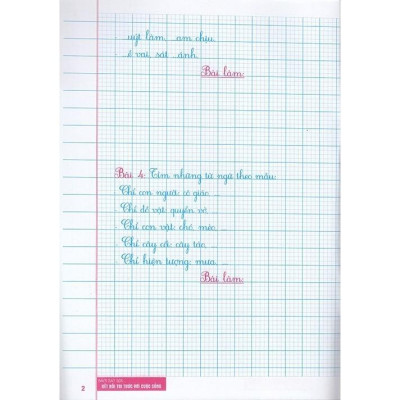 _uột lầm, _am chịu
_ề vai, sát _ánh
Bài làm:
Bài 4: Tìm những từ ngữ theo mẫu:
Chỉ con người: cô giáo, ...
Chỉ đồ vật: quyển vở, ...
Chỉ con vật: chó, mèo, ...
Chỉ cây cối: cây táo, ...
Chỉ hiện tượng: mưa, ...
Bài làm:
2
KẾT NỐI TRI THỨC VỚI CUỘC SỐNG